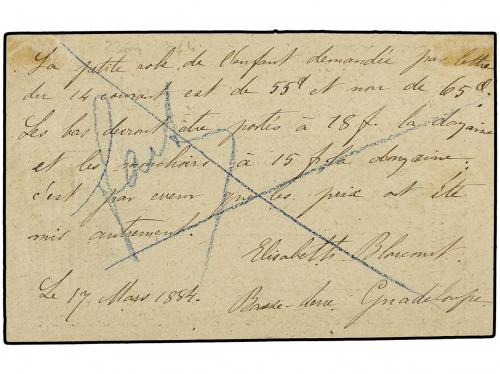 La petite robe de l'enfant demandée par lettre
du 14 courant est de 55 et non de 65
Les bas devront être portés à 18 f. la douzaine
et les mouchoirs à 15 f. la douzaine.
c'est par erreur que les prix ont été
mis autrement.
Elisabeth Bloncourt.
Le 17 Mars 1884.
Basse-terre Guadeloupe